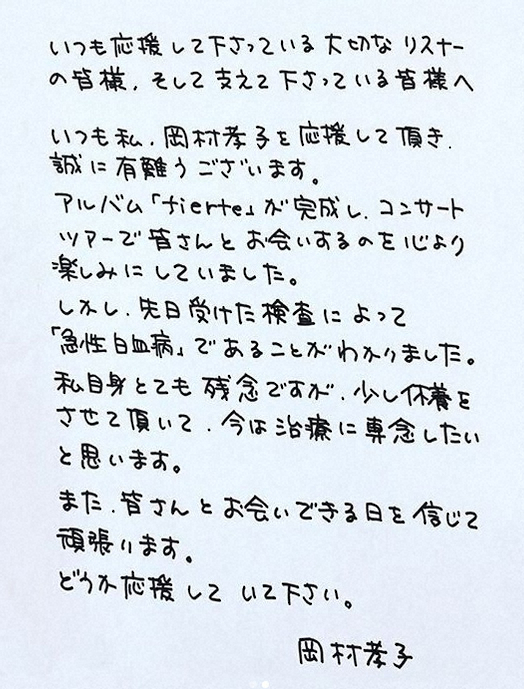 いつも応援して下さっている大切なリスナー
の皆様、そして支えて下さっている皆様へ
いつも私、岡村孝子を応援して頂き、
誠に有難うございます。
アルバム「fierte」が完成し、コンサート
ツアーで皆さんとお会いするのを心より
楽しみにしていました。
しかし、先日受けた検査によって
「急性白血病」であることがわかりました。
私自身とても残念ですが、少し休養を
させて頂いて、今は治療に専念したい
と思います。
また、皆さんとお会いできる日を信じて
頑張ります。
どうか応援していて下さい。
岡村孝子